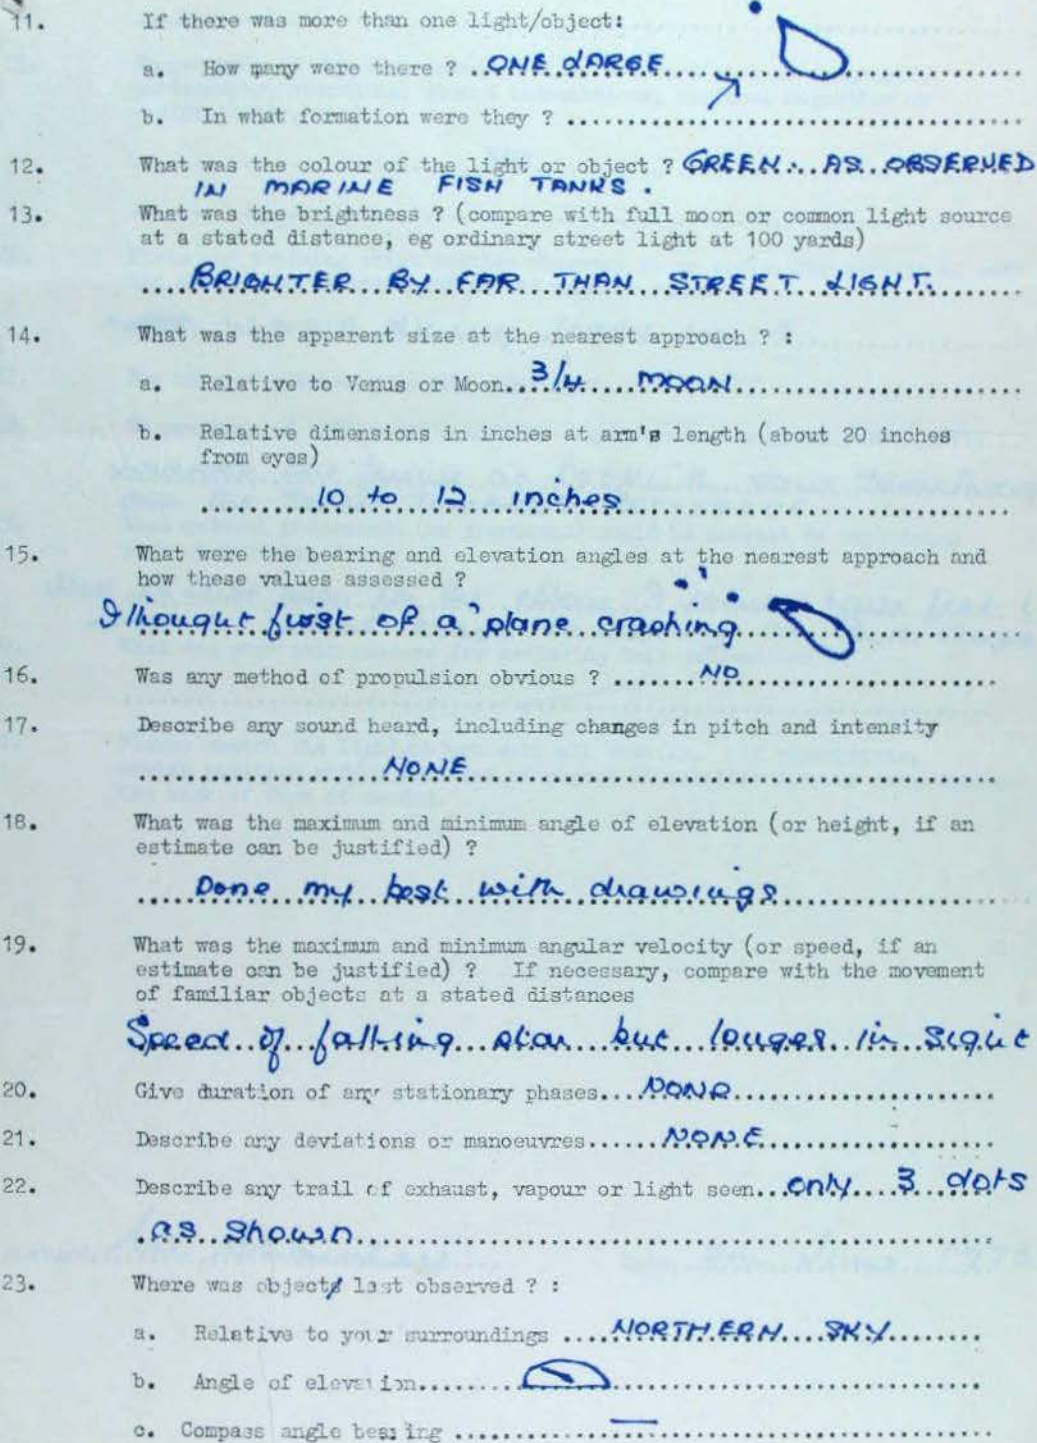 11. If there was more than one light/object:
a. How many were there ? ..ONE LARGE..........
b. In what formation were they ? ..........
12. What was the colour of the light or object ? GREEN. AS OBSERVED
IN MARINE FISH TANKS.
13. What was the brightness ? (compare with full moon or common light source
at a stated distance, eg ordinary street light at 100 yards)
....BRIGHTER BY FAR THAN STREET LIGHT.......
14. What was the apparent size at the nearest approach ? :
a. Relative to Venus or Moon..3/4 MOON..........
b. Relative dimensions in inches at arm's length (about 20 inches
from eyes)
..........10 to 12 inches..........
15. What were the bearing and elevation angles at the nearest approach and
how these values assessed ?
I thought first of a 'plane crashing..........
16. Was any method of propulsion obvious ? .......NO..........
17. Describe any sound heard, including changes in pitch and intensity
..........NONE..........
18. What was the maximum and minimum angle of elevation (or height, if an
estimate can be justified) ?
.....Done my best with drawings..........
19. What was the maximum and minimum angular velocity (or speed, if an
estimate can be justified) ? If necessary, compare with the movement
of familiar objects at a stated distances
Speed of falling star but longer in sight
20. Give duration of any stationary phases....NONE..........
21. Describe any deviations or manoeuvres......NONE..........
22. Describe any trail of exhaust, vapour or light seen...only 3 dots
.as shown..........
23. Where was object last observed ? :
a. Relative to your surroundings ....NORTHERN SKY........
b. Angle of elevation..........
c. Compass angle bearing ..........